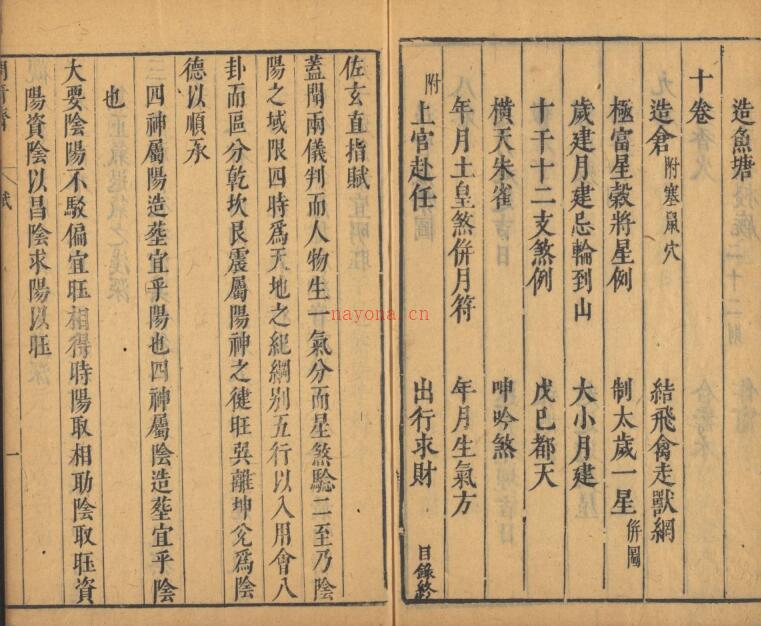 造魚塘
十卷
造倉附塞鼠穴　結飛禽走獸網
極富星穀將星例　制太歲一星併圖
歲建月建忌輪到山　大小月建
十干十二支煞例　戊巳都天
橫天朱雀　呻吟煞
年月土皇煞併月符　年月生氣方
附上官赴任　出行求財　目錄終
佐玄直指賦
蓋聞兩儀判而人物生一氣分而星煞驗二至乃陰
陽之域限四時爲天地之紀綱別五行以入用會八
卦而區分乾坎艮震屬陽神之健旺巽離坤兌爲陰
德以順承
四神屬陽造塟宜乎陽也四神屬陰造塟宜乎陰
也
大要陰陽不駁偏宜旺相得時陽取相助陰取旺資
陽資陰以昌陰求陽以旺
賦
一
nayona.cn